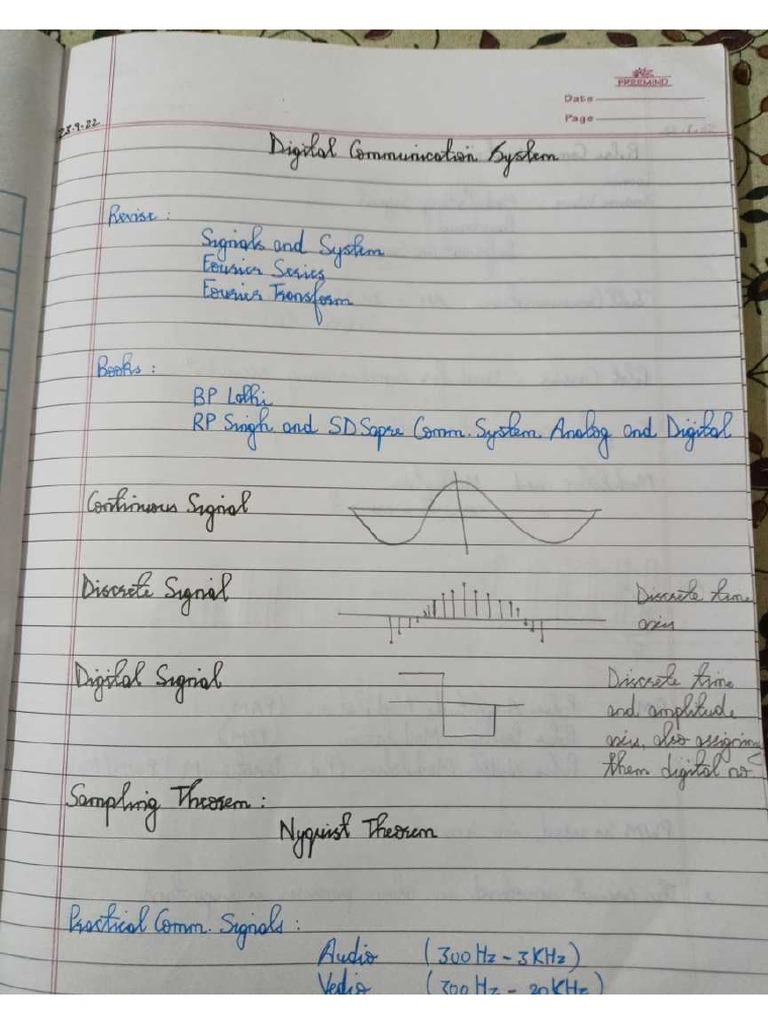 FREEMIND
Date
Page
28.9.22
Digital Communication System
Revise:
Signals and System
Fourier Series
Fourier Transform
Books:
BP Lathi
RP Singh and SD Sapre Comm. System Analog and Digital
Continuous Signal
Discrete Signal
Discrete time
axis
Digital Signal
Discrete time
and amplitude
axis, also assigning
them digital no.
Sampling Theorem:
Nyquist Theorem
Practical Comm. Signals:
Audio (300Hz - 3KHz)
Vedio (300Hz - 20KHz)